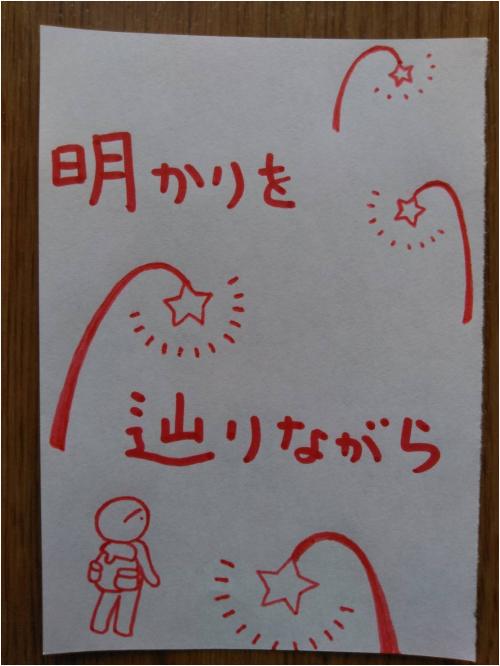 明かりを
辿りながら